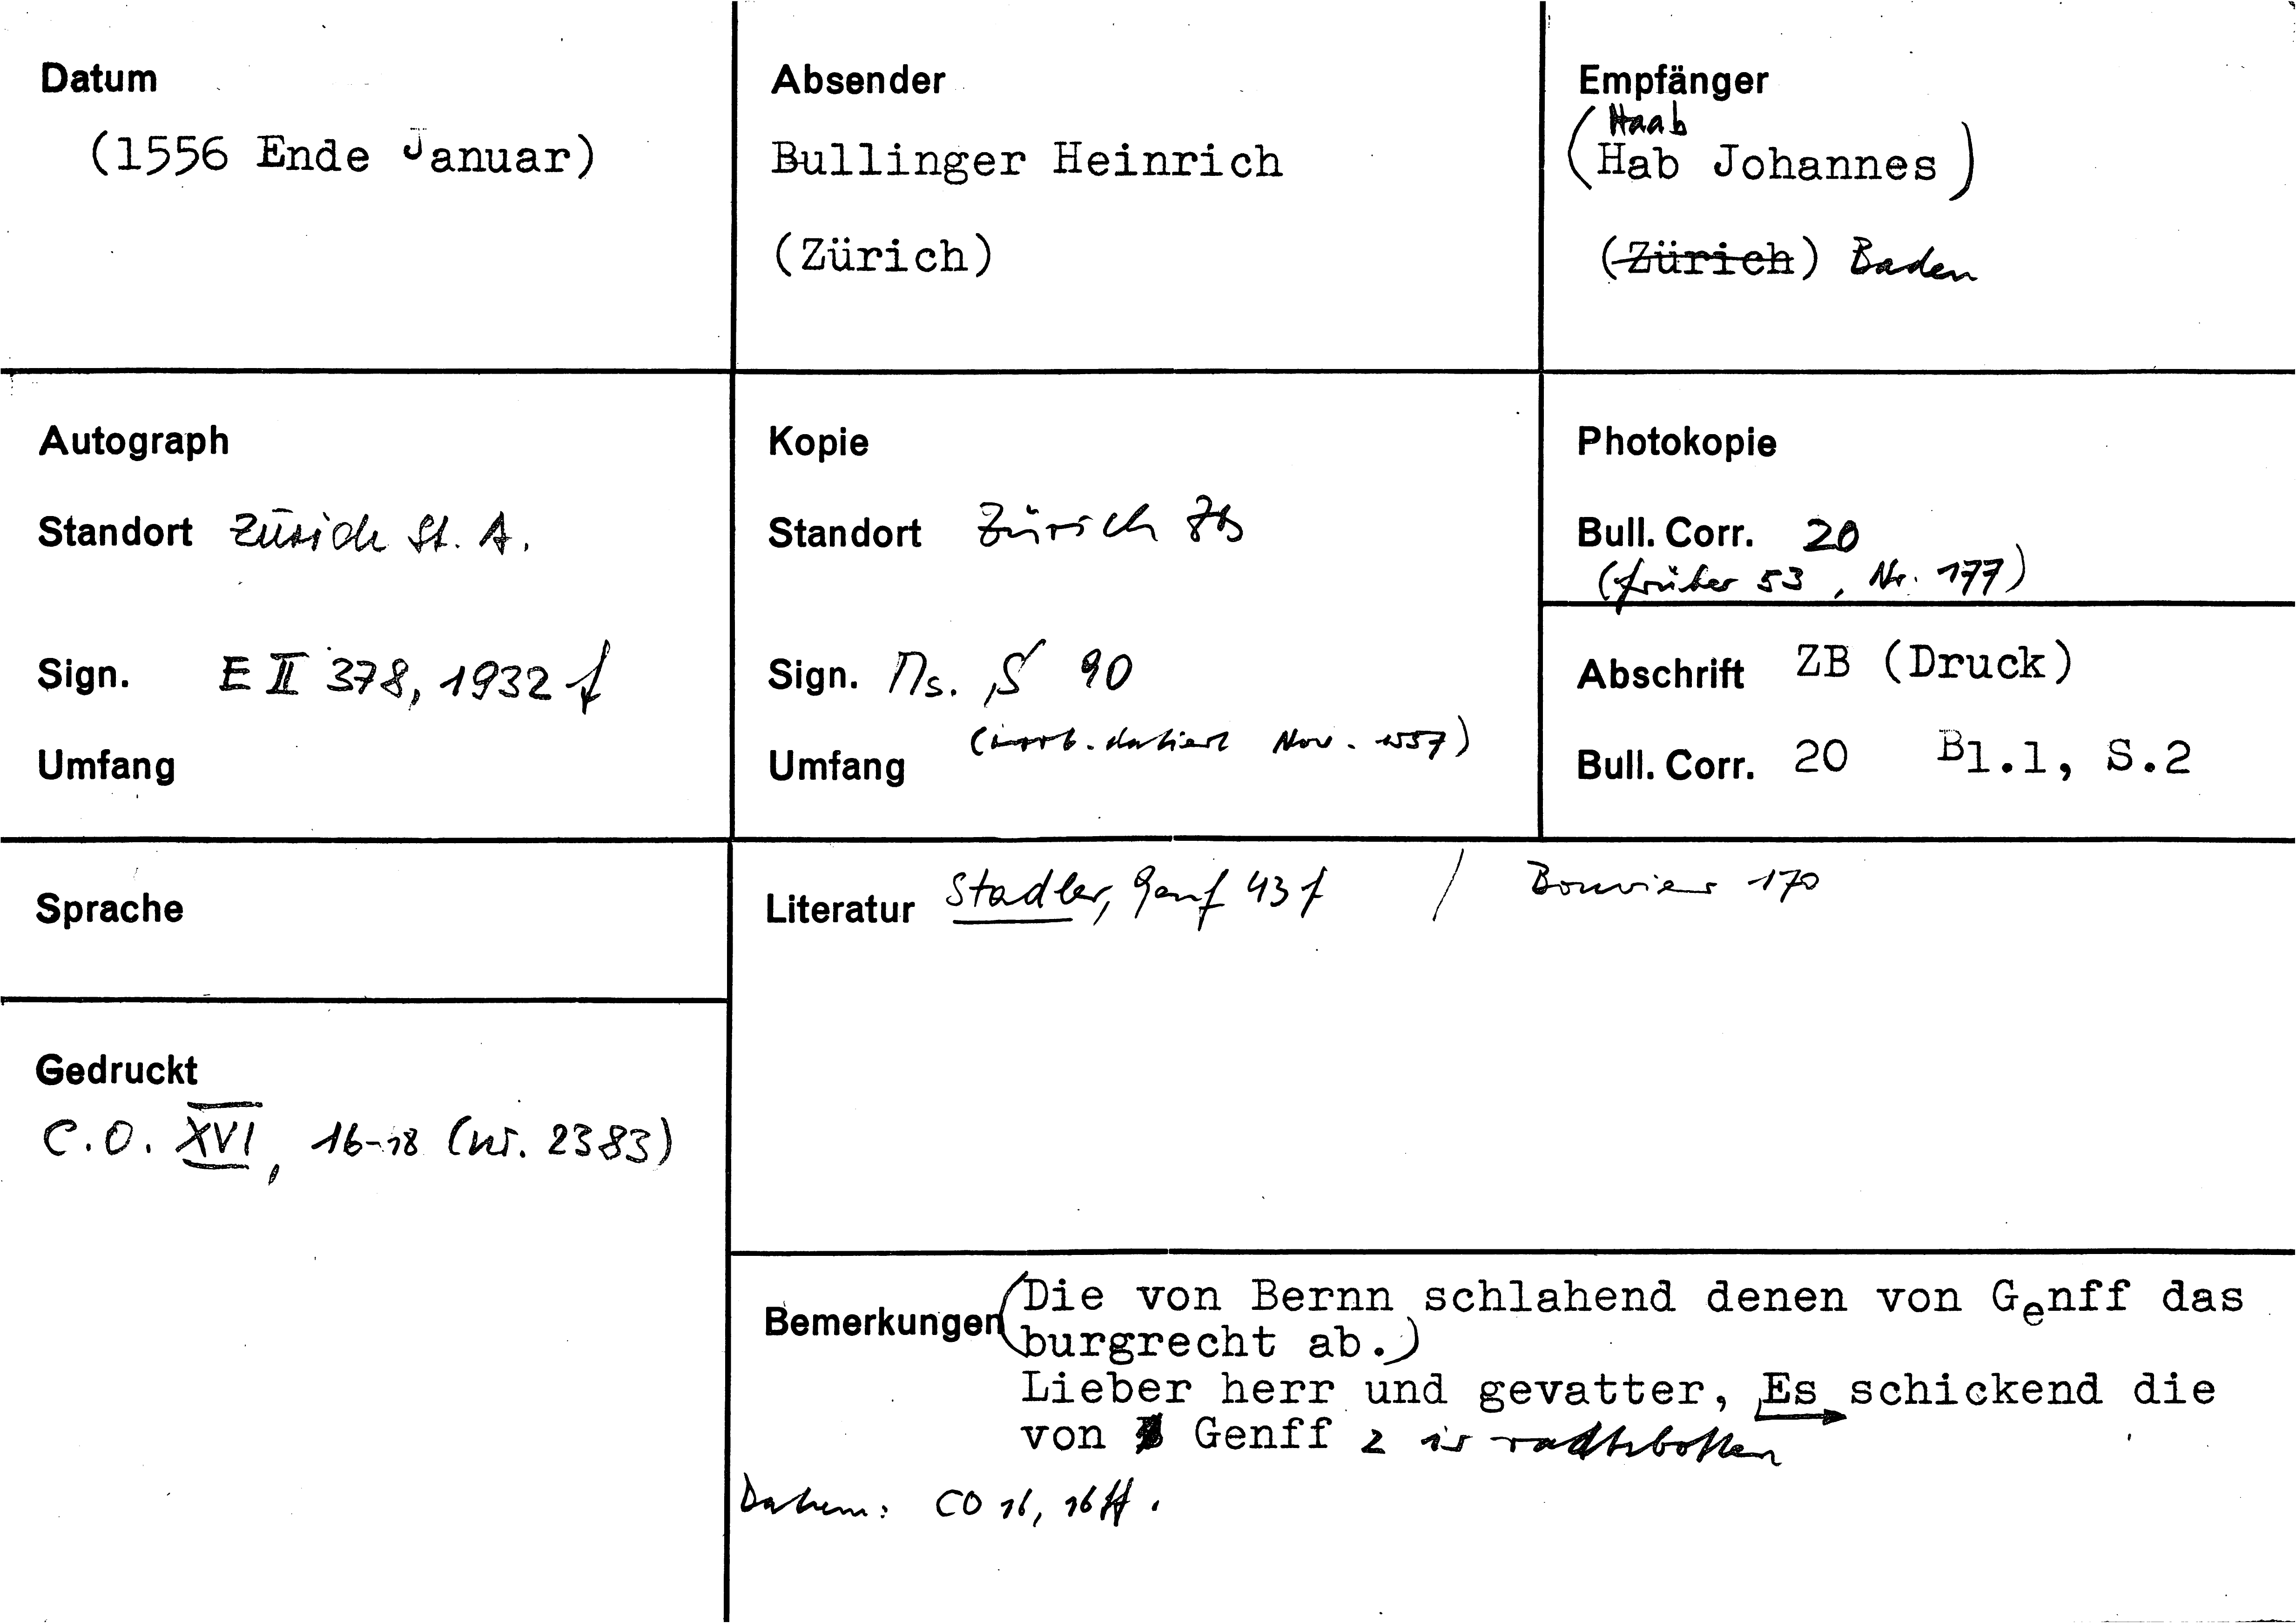 Datum
(1556 Ende Januar)
Absender
Bullinger Heinrich
(Zürich)
Empfänger
Haab
(Hab Johannes)
(Zürich) Baden
Autograph
Standort Zürich St. A.
Sign. E II 378, 1932 f
Umfang
Kopie
Standort Zürich ZB
Sign. Ms. S 90
(datiert Nov. 1557)
Umfang
Photokopie
Bull. Corr. 20
(früher 53, Nr. 177)
Abschrift ZB (Druck)
Bull. Corr. 20 Bl.1, S.2
Sprache
Literatur Stadler, Genf 43 f / Bouvier 170
Gedruckt
C.O. XVI, 16-18 (Nr. 2383)
Bemerkungen (Die von Bernn schlahend denen von Genff das
burgrecht ab.)
Lieber herr und gevatter, Es schickend die
von Genff 2 ir radtsbotten
Datum: CO 16, 16ff.